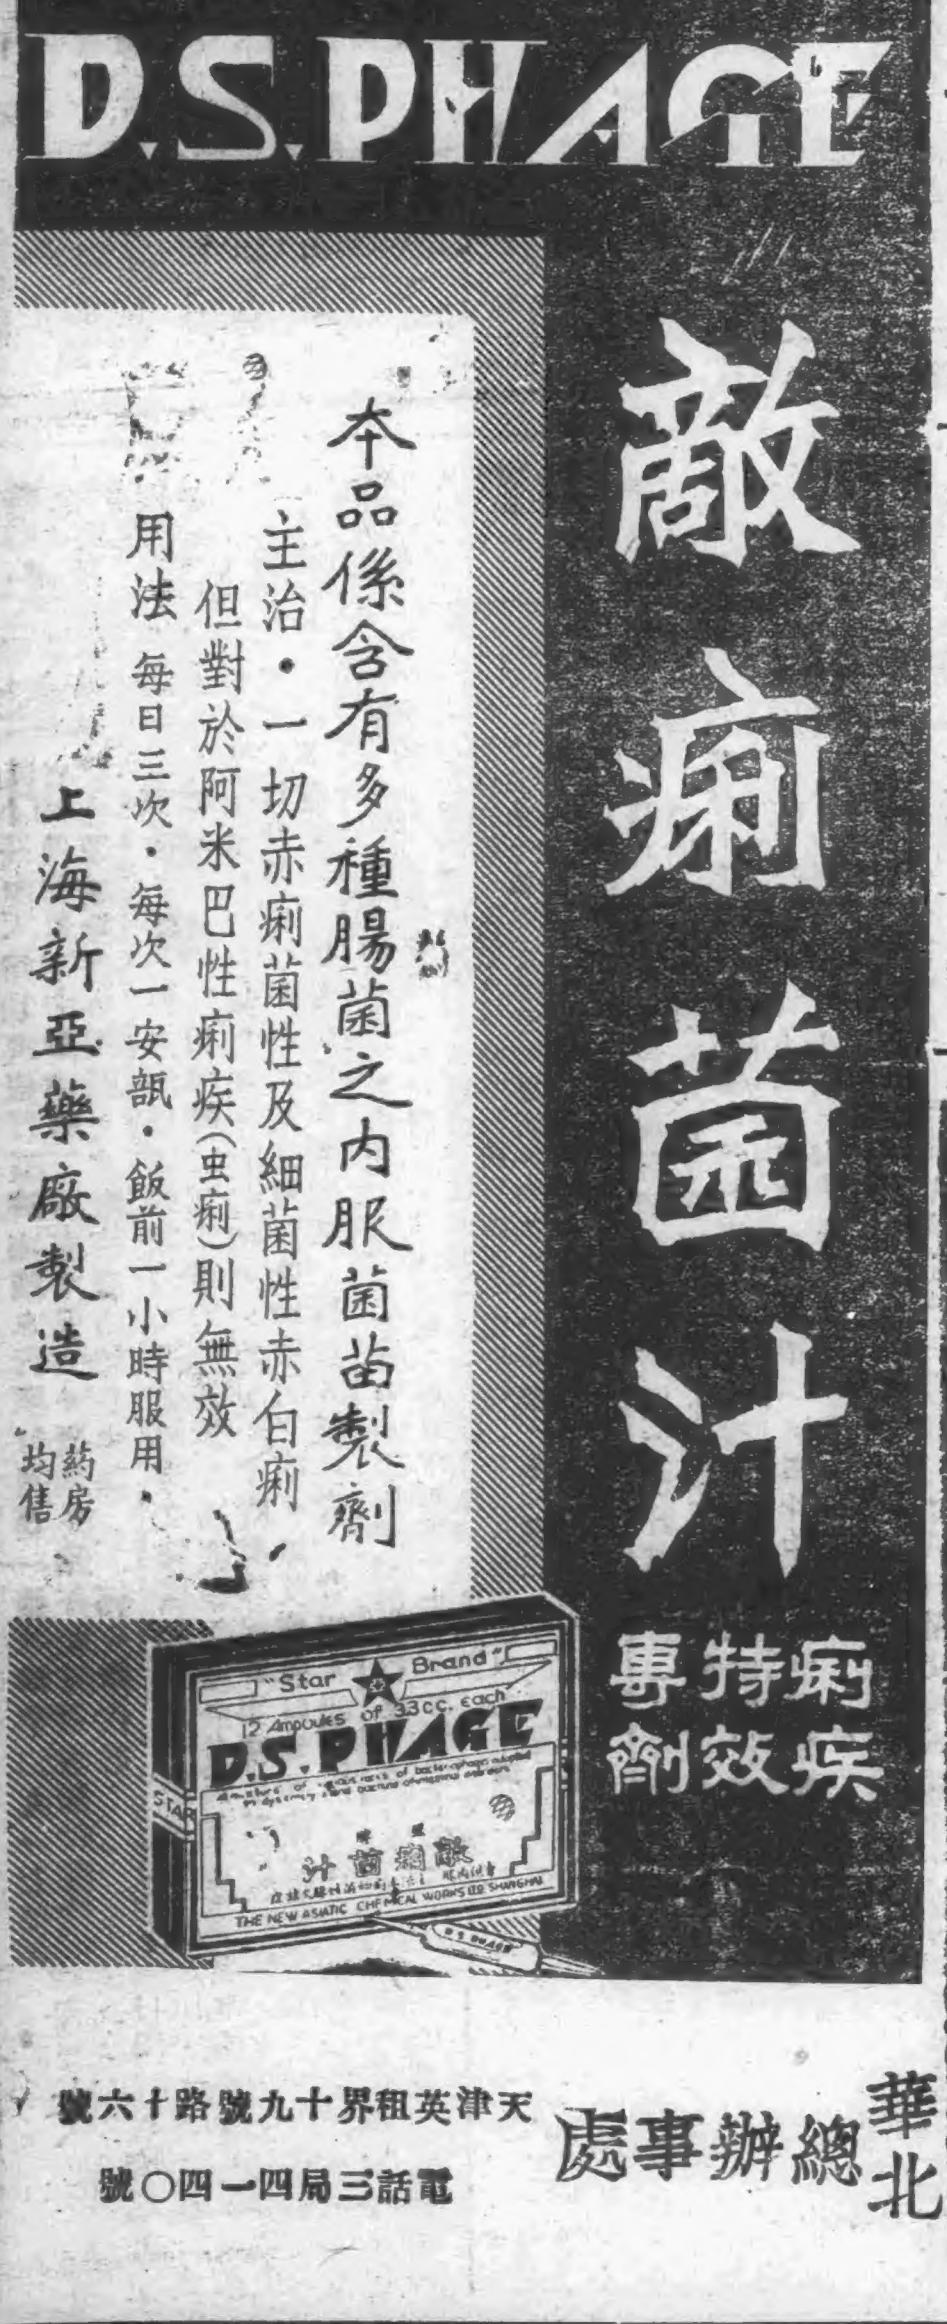 D.S.PHAGE
敵痢菌汁
痢疾
特效
專劑
本品係含有多種腸菌之内服菌苗製劑
主治·一切赤痢菌性及細菌性赤白痢
但對於阿米巴性痢疾(虫痢)則無效
用法 每日三次·每次一安瓿·飯前一小時服用·
上海新亞藥廠製造
葯房
均售
"Star Brand"
12 Ampoules of 3.3cc. each
D.S.PHAGE
STAR
敵痢菌汁
THE NEW ASIATIC CHEMICAL WORKS LTD SHANGHAI
D S PHAGE
華北
總辦事處
天津英租界十九號路十六號
電話三局四一四〇號